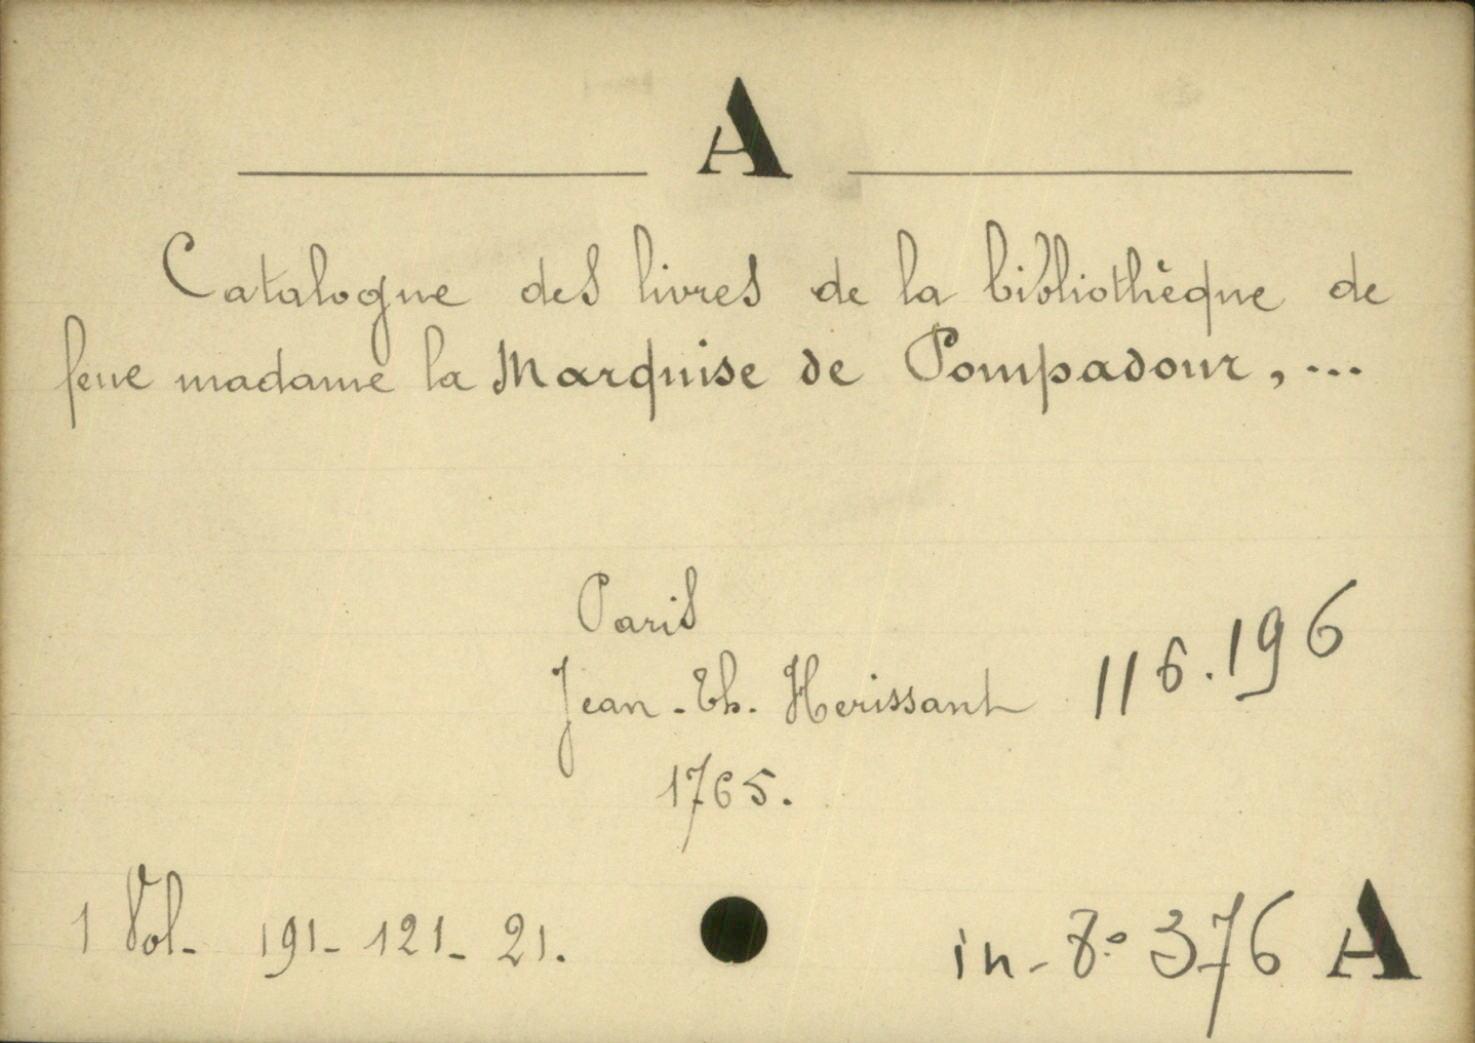 A
Catalogue des livres de la bibliothèque de
feue madame la Marquise de Pompadour, ...
Paris
Jean-Th. Herissant
116.196
1765.
1 Vol. 191-121-21.
in-8.° 376 A